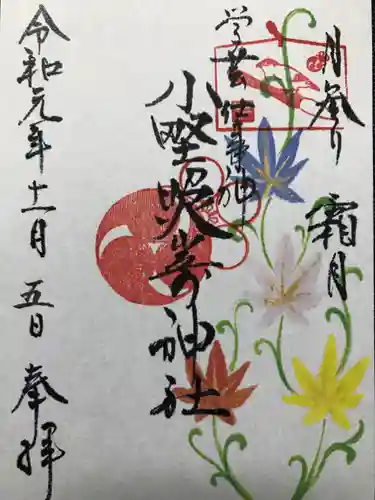 月参り
霜月
学芸健康神
小野照崎神社
令和元年十一月五日 奉拝